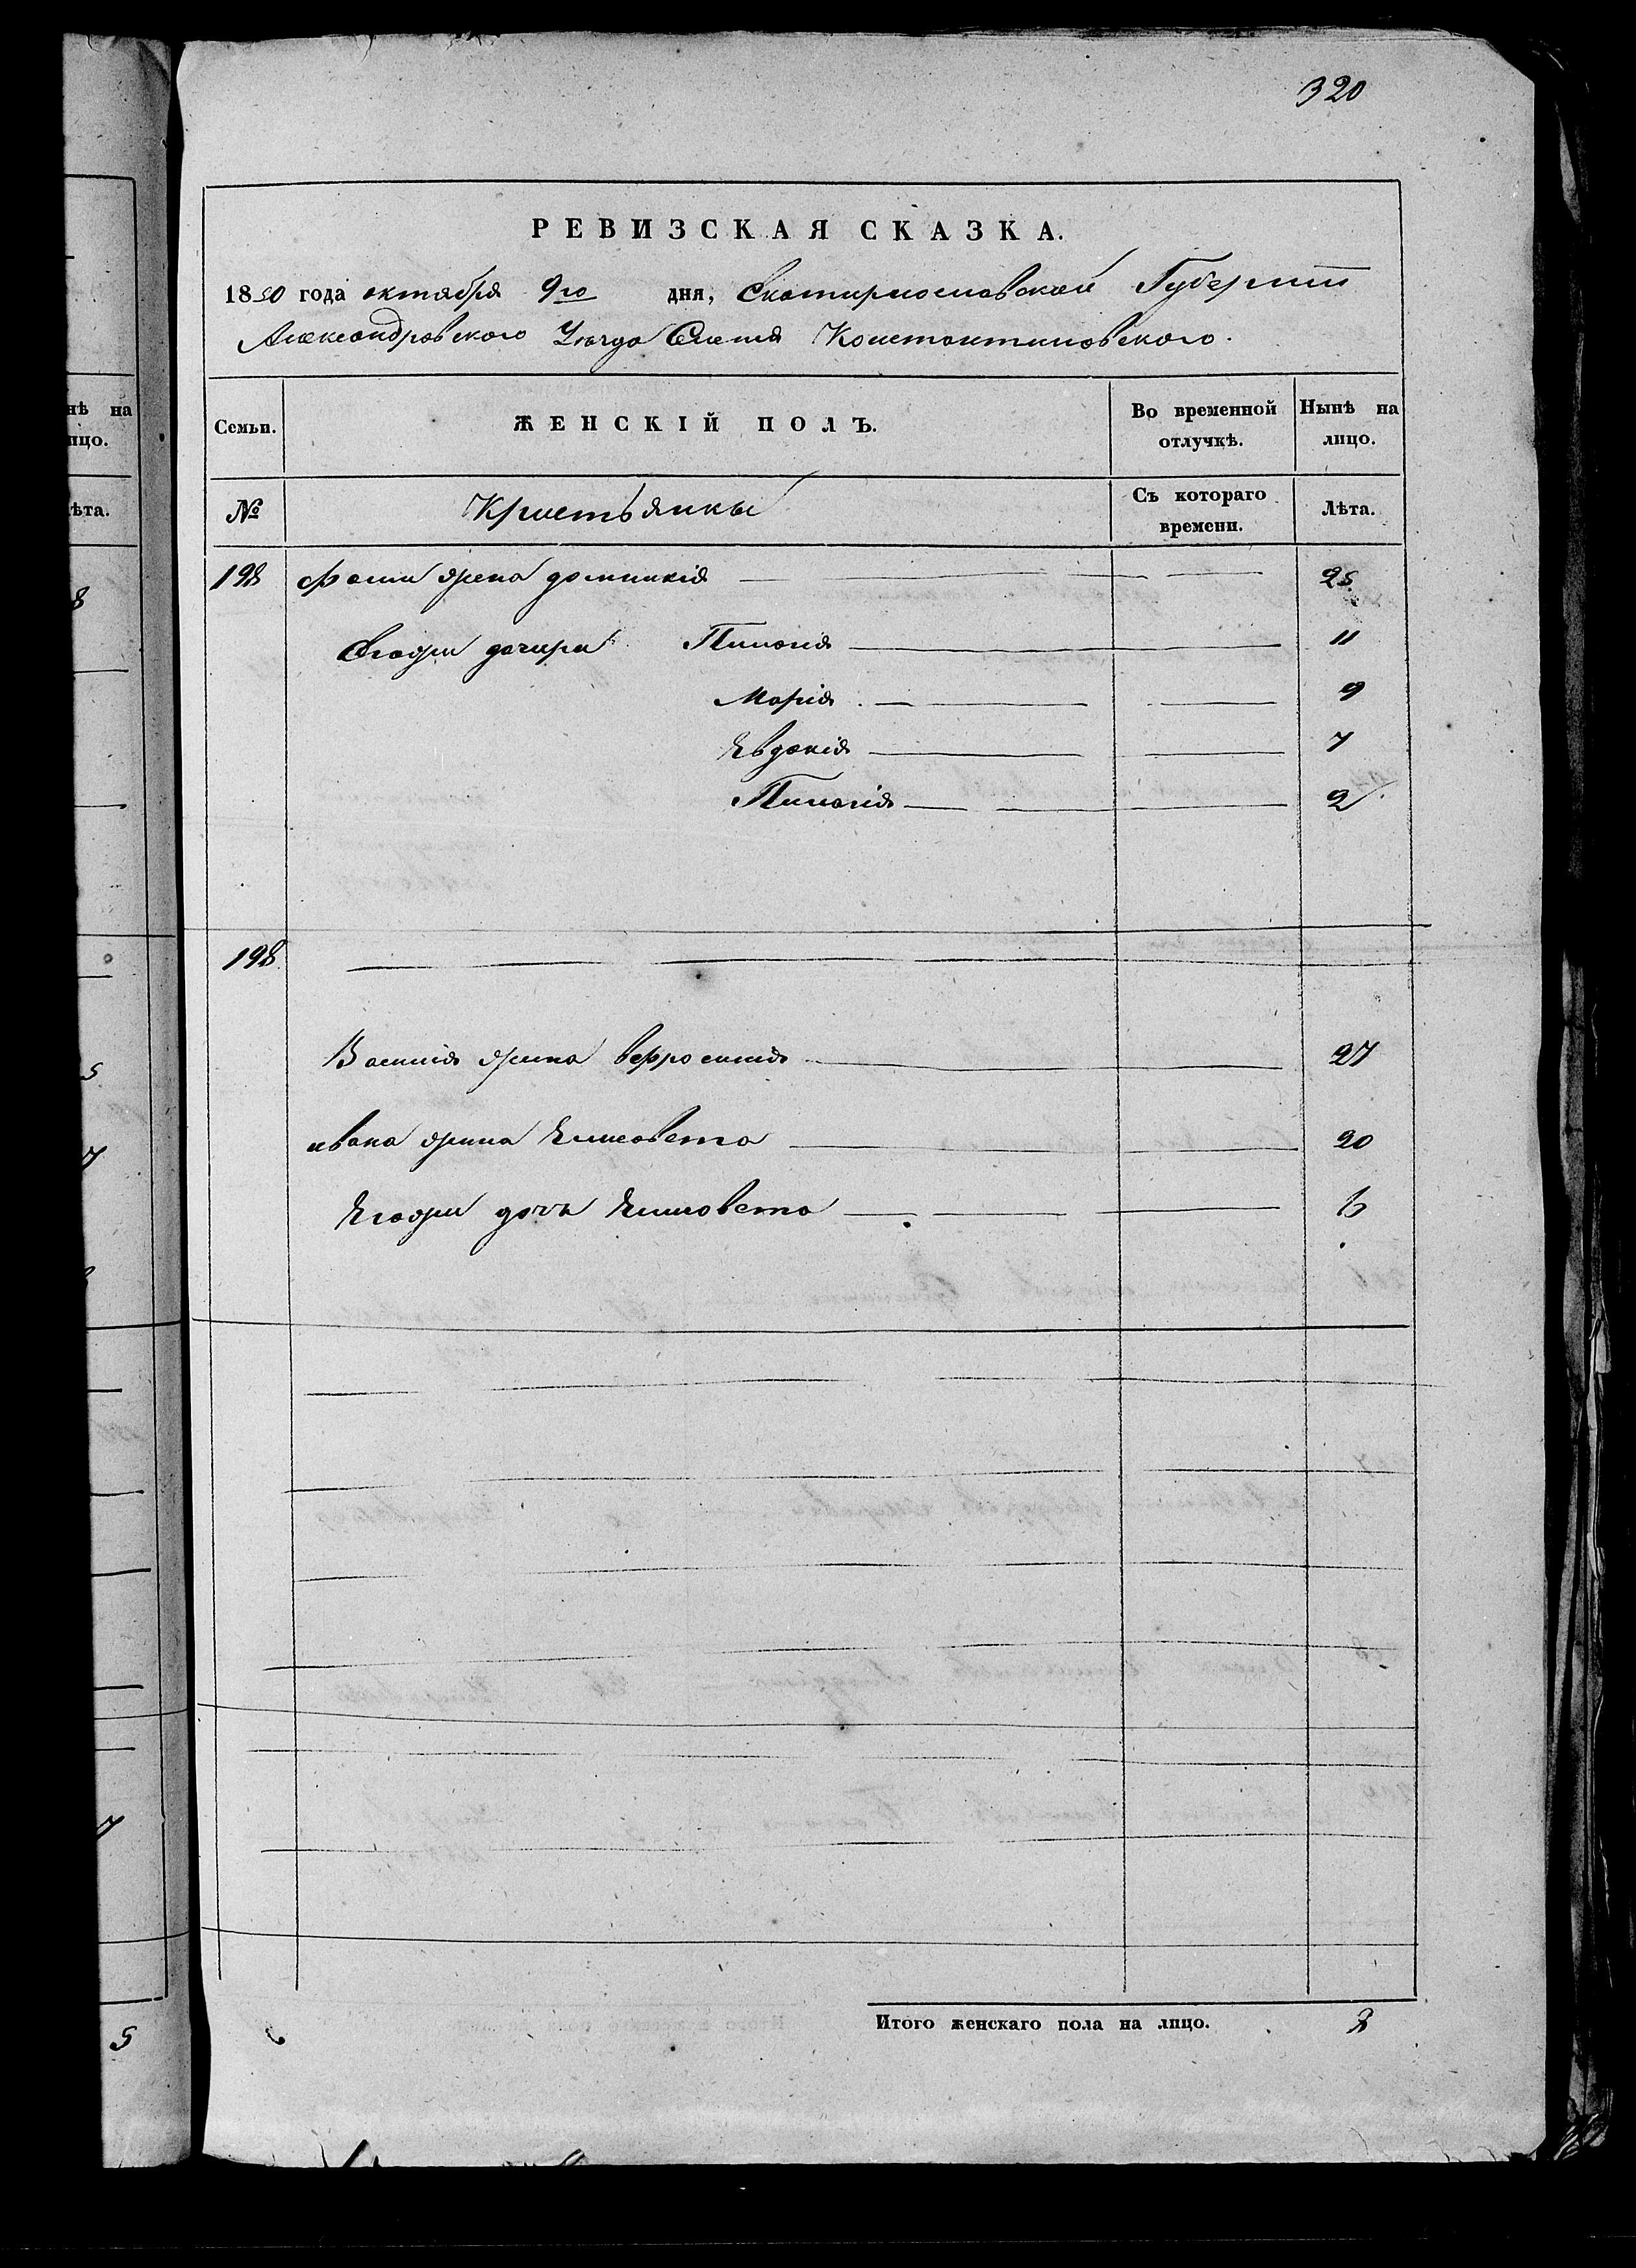 320
РЕВИЗСКАЯ СКАЗКА.
1850 года октября 9го дня, Екатеринославской Губернии
Александровского Уезда Селения Константиновского.
Семьи. ЖЕНСКІЙ ПОЛЪ. Во временной отлучкѣ. Нынѣ на лицо.
№ Крестьянки Съ котораго времени. Лѣта.
198 Фомы жена Домникія 25
Его же дочери Пелагия 11
Марія 9
Евдокія 7
Пелагія 2
198
Василія жена Ефросинія 27
Ивана жена Елисавета 20
Его же дочь Елисавета
Итого женскаго пола на лицо.